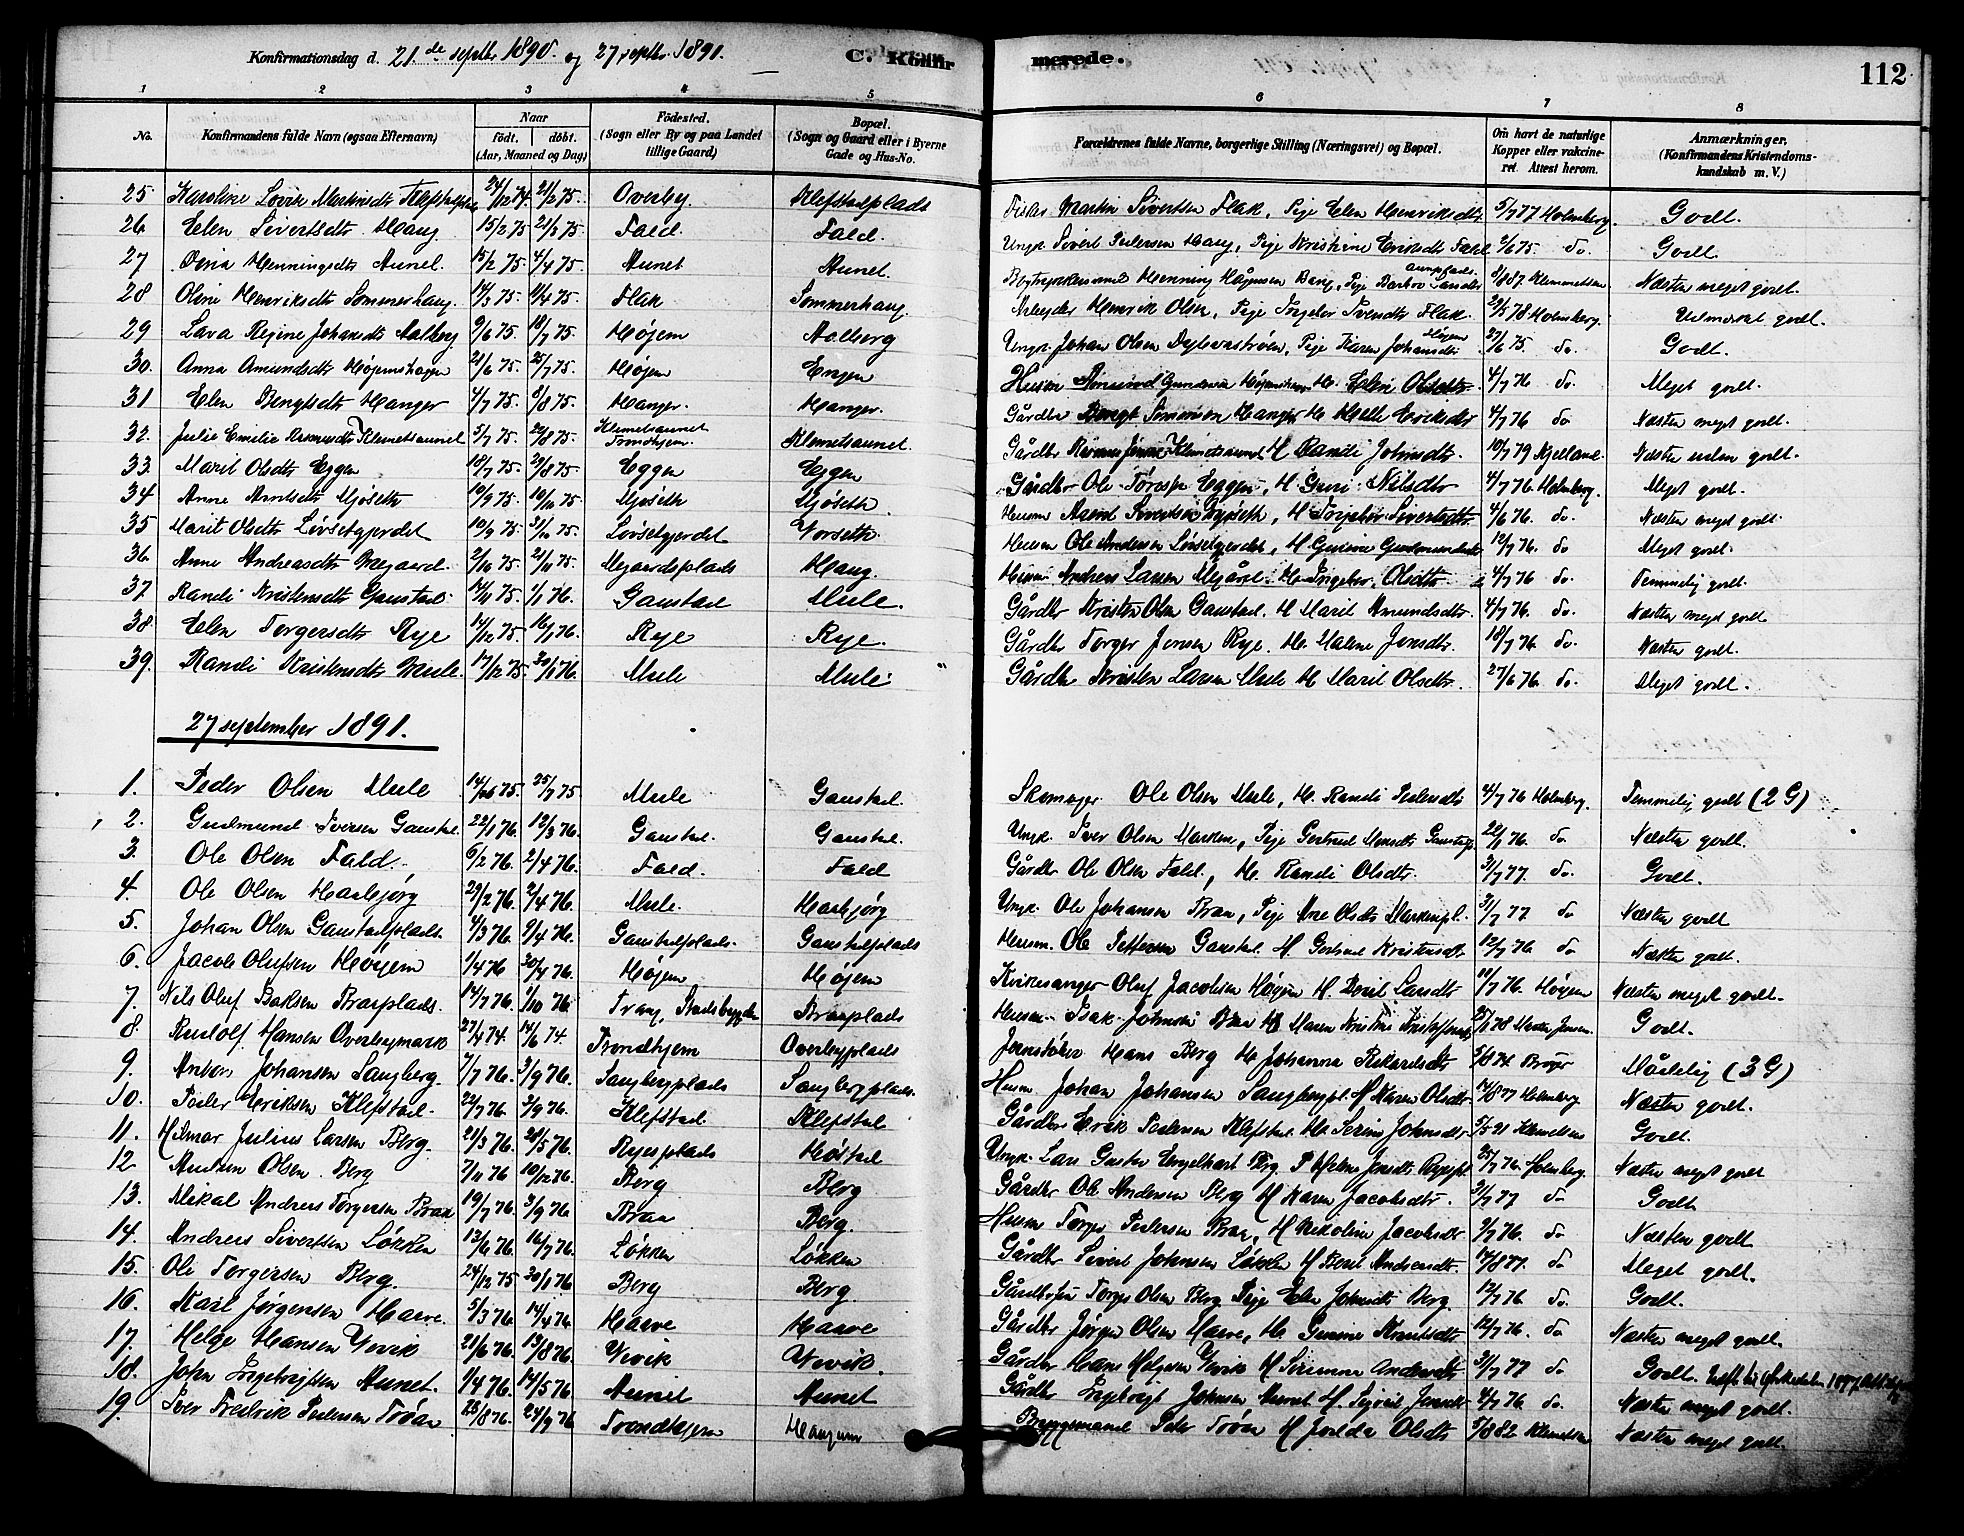 Konfirmationsdag d. 21de septbr 1890. og 27 septbr. 1891.
C. Konfir
merede.
112
1 2 3 4 5 6 7 8
No. Konfirmandens fulde Navn (ogsaa Efternavn)
Naar
födt. döbt.
(Aar, Maaned og Dag)
Födested.
(Sogn eller By og paa Landet tillige Gaard)
Bopæl.
(Sogn og Gaard eller i Byerne Gade og Hus-No.
Forældrenes fulde Navne, borgerlige Stilling (Næringsvei) og Bopæl.
Om havt de naturlige Kopper eller vaccineret. Attest herom.
Anmærkninger.
(Konfirmandens Kristendomskundskab m. V.)
25 Karoline Lovise Martinsdtr 24/12 74. 21/2 75 Overby. Klefstadplads Fisker Martin Sivertsen Flak, Pige Elen Henriksdtr 5/7 77 Holmberg. Godt.
26 Elen Sivertsdtr Haug 15/2 75 21/3 75 Fald. Fald. Ungk. Sivert Pedersen Haug, Pige Kristine Eriksdtr Fald 9/6 75. do. Godt.
27 Henningsdtr Aunet. 15/2 75. 4/4 75. Aunet Aunet. Henning Magnusen Berg, Pige Klemmetsen Næsten meget godt.
28 Oline Henriksdtr Sommerhaug. 14/3 75. 11/4 75. Flak Sommerhaug. Arbeider Henrik Olsen, Pige Ingebor Svendsdtr Flak. 29/5 78 Holmberg. Udmærket godt.
29 Lava Regine Johansdtr Aalberg 9/6 75. 18/7 75. Højem Aalberg Ungk. Johan Olsen Pige Karen Johansdtr Højem 27/6 75. do. Godt.
30. Anna Amundsdtr Højemshagen 21/6 75. 25/7 75. Højem Engen Husm Amund Gundersen H. Elen Olsdtr 4/7 76 do. Meget godt.
31 Elen Bengtsdtr Hanger 4/7 75. 8/8 75. Hanger. Hanger. Gårdbr Bengt Simonsen Hanger H. Eriksdtr 4/7 76 do Næsten meget godt.
32. Julie Emilie Rasmusdtr Klemetsaunet 5/7 75. 22/8 75. Klemetsaunet Trondhjem. Klemetsaunet. Gårdbr Rasmus Klemetsaunet H Randi Johnsdtr. 10/7 79 Kjelland. Næsten uden godt.
33. Marit Olsdtr Eggen 18/7 75. 29/8 75. Eggen Eggen. Gårdbr Ole Eggen, H. Guri Nilsdtr 4/7 76 Holmberg. Meget godt.
34 Anne Arntsdtr Mjøseth 10/9 75. 10/10 75 Mjøseth Mjøseth. Husm Arent Sivertsen Mjøseth, H Ingebor Sivertsdtr. 4/6 76. do. Næsten meget godt.
35 Marit Olsdtr Løvsetgjerdet 10/9 75. 31/10 75. Løvsetgjerdet Vorseth. Husm Ole Andersen Løvsetgjerdet, H. Gurine Gudmundsdtr 12/7 76. do Meget godt.
36. Anne Andreasdtr Megaard. 2/10 75. 21/11 75. Megaardsplads Haug. Husm Andreas Larsen Megård. H. Ingebor. Olsdtr 4/7 76 do. Temmelig godt.
37. Randi Kristensdtr Gaustad. 14/11 75. 1/1 76. Gaustad Mule. Gårdbr Kristen Olsen Gaustad. H Marit Amundsdtr. 4/7 76. do. Næsten meget godt.
38 Elen Torgersdtr Rye 14/12 75 16/1 76. Rye Rye. Gårdbr Torger Jensen Rye. H. Malene Jonsdtr. 18/7 76. do. Næsten godt.
39. Randi Kristensdtr Mule. 17/12 75. 30/1 76. Mule Mule Gårdbr Kristen Larsen Mule H Marit Olsdtr. 27/6 76. do. Meget godt.
27 september 1891.
1. Peder Olsen Mule 25/7 75 Mule Gaustad. Skomager Ole Olsen Mule, H. Randi Pedersdtr 4/7 76 Holmberg. Temmelig godt (2 G)
2. Gudmund Iversen Gaustad. 22/1 76. 12/3 76. Gaustad. Gaustad. Ungk. Iver Olsen Pige Gertrud 22/1 76. do Næsten godt.
3. Ole Olsen Fald. 6/2 76. 2/4 76. Fald. Fald Gårdbr Ole Olsen Fald, H. Randi Olsdtr. 31/7 77. do. Godt.
4. Ole Olsen Harbjørg 29/2 76. 2/4 76. Mule. Harbjørg Ungk. Ole Johansen Braa, Pige Ane Olsdtr 31/7 77 do Næsten godt.
5. Johan Olsen Gaustadplads. 4/3 76. 9/4 76. Gaustadplads. Gaustadplads Husm. Ole Pettersen Gaustad. H. Gertrud Kristensdtr 12/7 76. do. Næsten godt.
6. Jacob Olufsen Højem 1/4 76 30/4 76. Højem Højem Kirkesanger Oluf Jacobsen Højem H. Berit Larsdtr 11/7 76. Højem Næsten meget godt.
7. Nils Oluf Isaksen Braaplads. 14/7 76. 1/10 76 Stadsbygden Braaplads Husm. Isak Johnsen Braa H Maren Kristine Godt.
8. Rudolf Hansen Overbymark 27/4 74. 14/6 74. Trondhjem Overbyplads Jernstøber Hans Berg H. Johanna Rikardsdtr Brüger Mådelig (3 G)
9. Anton Johansen Saugberg. 7/7 76. 3/9 76. Saugbergplads Saugbergplads. Husm Johan Johansen Saugbergpl. H Karen Olsdtr 14/8 77 Holmberg Næsten godt.
10. Peder Eriksen Klefstad. 22/7 76. 3/9 76. Klefstad. Klefstad Gårdbr Erik Pedersen Klefstad H. Serine Johnsdtr Godt.
11. Hilmar Julius Larsen Berg. 21/3 76. 28/5 76. Ryesplads Høstad Ungk. Lars Gustav Engelhart Berg. P Helene Jonsdtr 25/7 76. Holmberg. Næsten meget godt
12 Anders Olsen Berg 7/11 76 10/12 76. Berg Berg Gårdbr Ole Andersen Berg H Karen Jacobsdtr. 31/7 77 do Godt
13. Mikal Andreas Torgersen Braa 19/7 76 3/9 76 Braa Berg. Husm Torger Pedersen Braa, H Nikoline Jacobsdtr 9/7 76. do Næsten godt
14. Andreas Sivertsen Løkken 12/6 76. 16/7 76. Løkken Løkken Gårdbr Sivert Johnsen Løkken H Berit Andreasdtr. 14/8 77. do Meget godt.
15. Ole Torgersen Berg. 24/12 75 30/1 76 Berg Berg. Torger Olsen Berg Pige Elen Johnsdtr Berg. 12/7 76 do. Godt.
16. Karl Jørgensen Harve. 5/3 76. 14/4 76 Harve Harve Gårdbr Jørgen Olsen Harve, H. Gurine Knutsdtr 12/7 76. do Næsten meget godt.
17. Helge Hansen Vevik 21/6 76. 13/8 76. Vevik Vevik. Gårdbr Hans Helgesen Vevik H Serianna Andersdtr 31/7 77 do Godt.
18. John Ingebrigtsen Aunet. 1/4 76. 14/5 76 Aunet Aunet Gårdbr Ingebrigt Johnsen Aunet H. Sigrid Jonsdtr 4/7 76. do Næsten meget godt.
19. Iver Fredrik Pedersen Trøan 23/8 76. 24/9 76 Trondhjem Haugum Bryggemand Peder Trøan H Jonilda Olsdtr 5/8 82 Klemetsen Næsten meget godt.